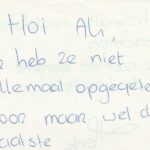 Hoi Ali,
heb ze niet
llemaal opgegete
oon maar wel d
aatste